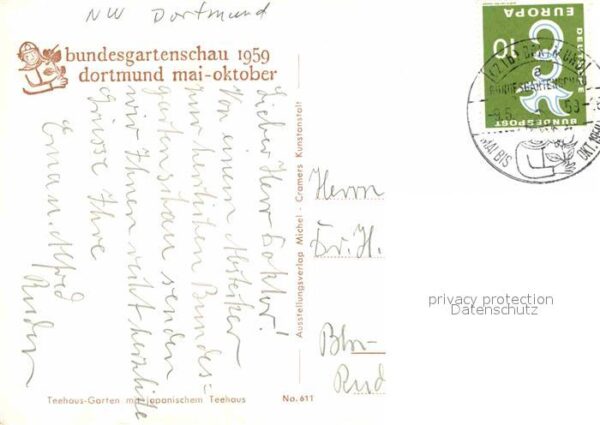 NW Dortmund
bundesgartenschau 1959
dortmund mai-oktober
Lieber Herr Doktor!
Von einem Abstecher
zur herrlichen Bundes=
gartenschau senden
wir Ihnen recht herzliche
Grüsse Ihre
Erna u. Alfred
Ausstellungsverlag Michel - Cramers Kunstanstalt
Teehaus-Garten mit japanischem Teehaus No. 611
Herrn
Dr. H.
Bln-
Rud
10
EUROPA
DEUTSCHE
BUNDESPOST
BUNDESGARTENSCHAU
59-
MAI BIS
OKT. 1959
privacy protection
Datenschutz